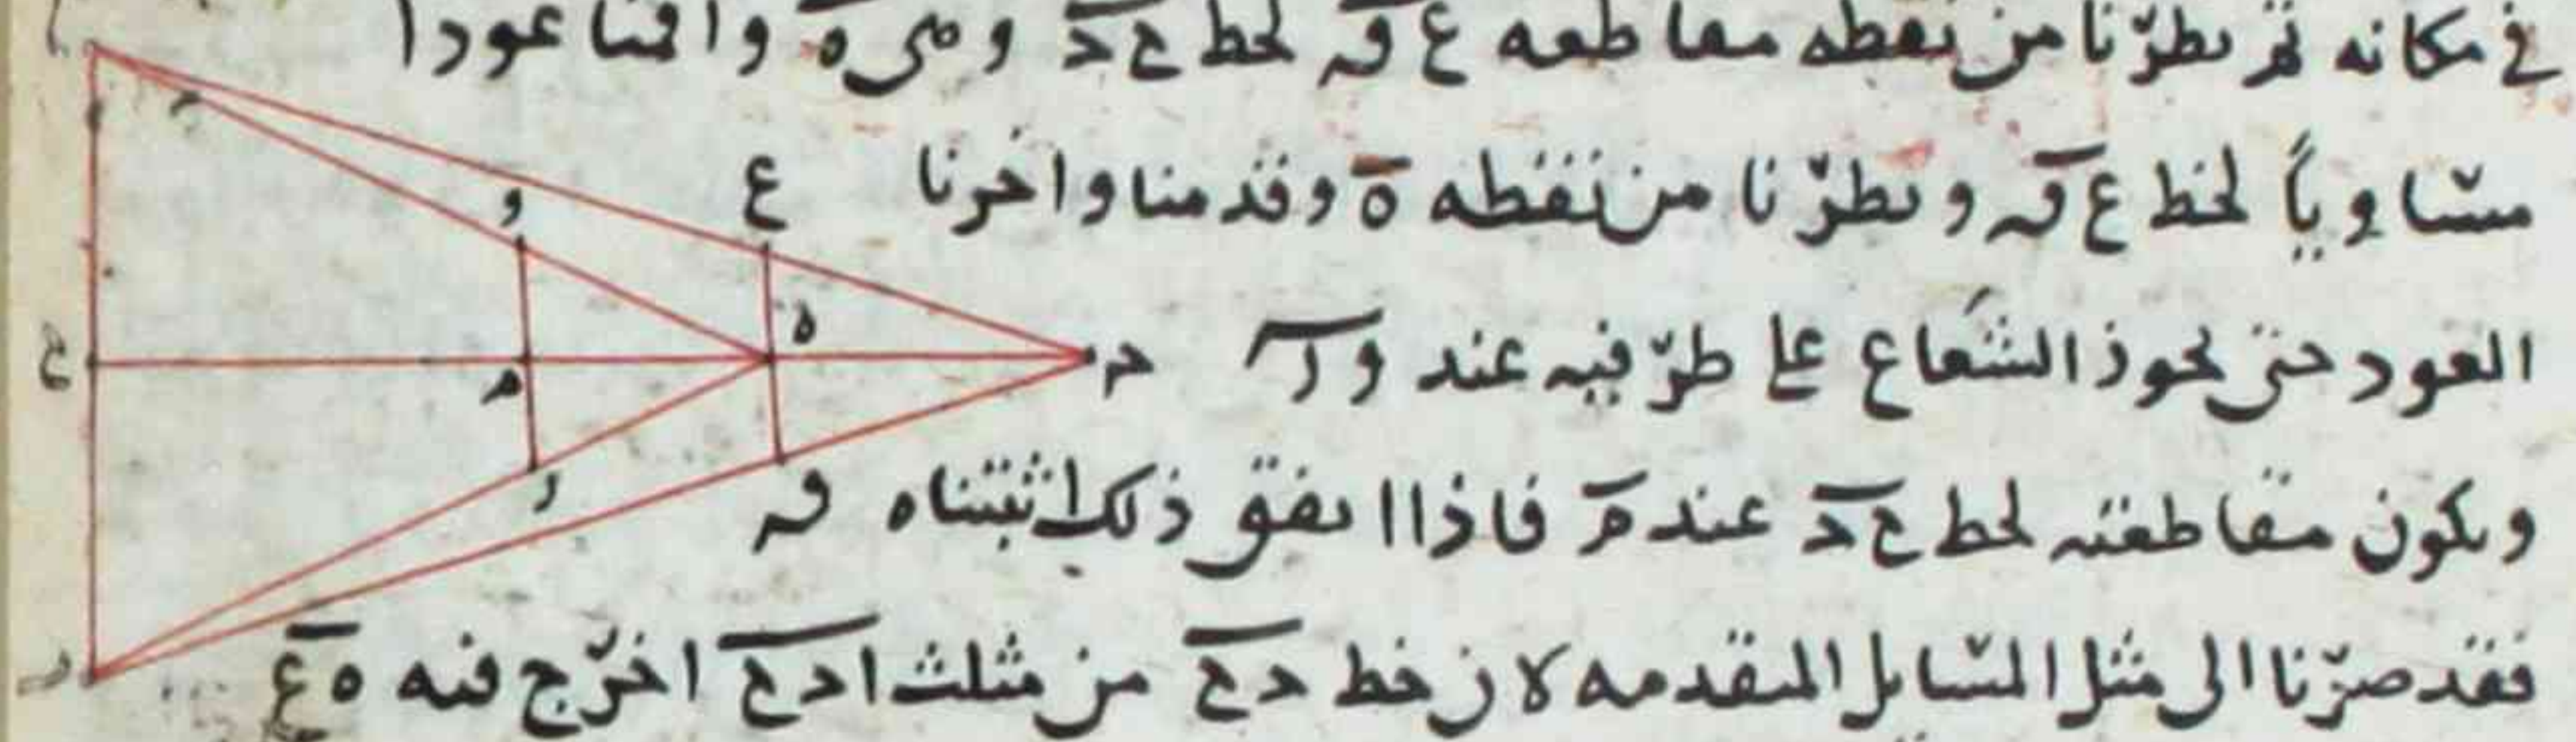 في مكانه ثم نظرنا من نقطه مقاطعه ع ف لخط ح د وهى ه واقمنا عمودا
مساوياً لخط ع ف ونظرنا من نقطه ه وقدمنا واخرنا
العود حتى يحوذ الشعاع على طرفيه عند و ر
ويكون مقاطعته لخط ح د عند م فاذا اتفق ذلك اثبتناه
فقد صرنا الى مثل المسايل المتقدمه لان خط د ح من مثلث ا د ح اخرج فيه ه ع
ا
و
ع
ه
ح
م
د
ر
ف
ب